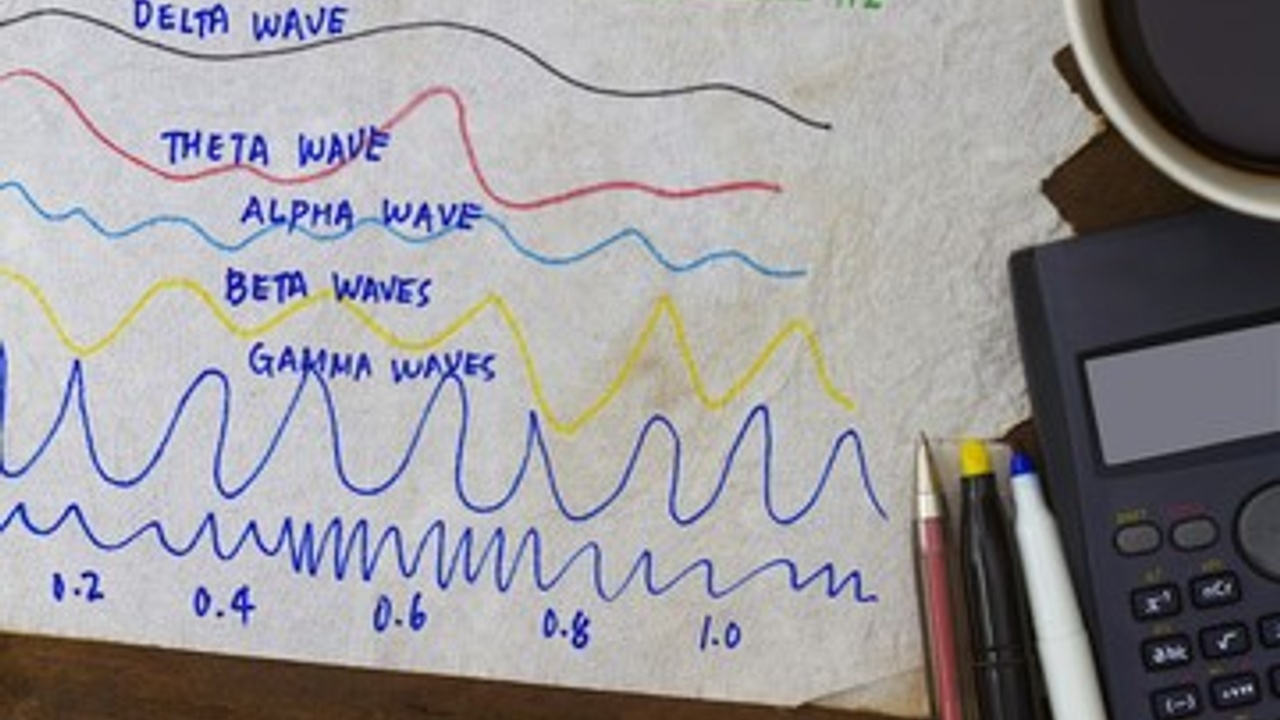 DELTA WAVE
THETA WAVE
ALPHA WAVE
BETA WAVES
GAMMA WAVES
0.2 0.4 0.6 0.8 1.0